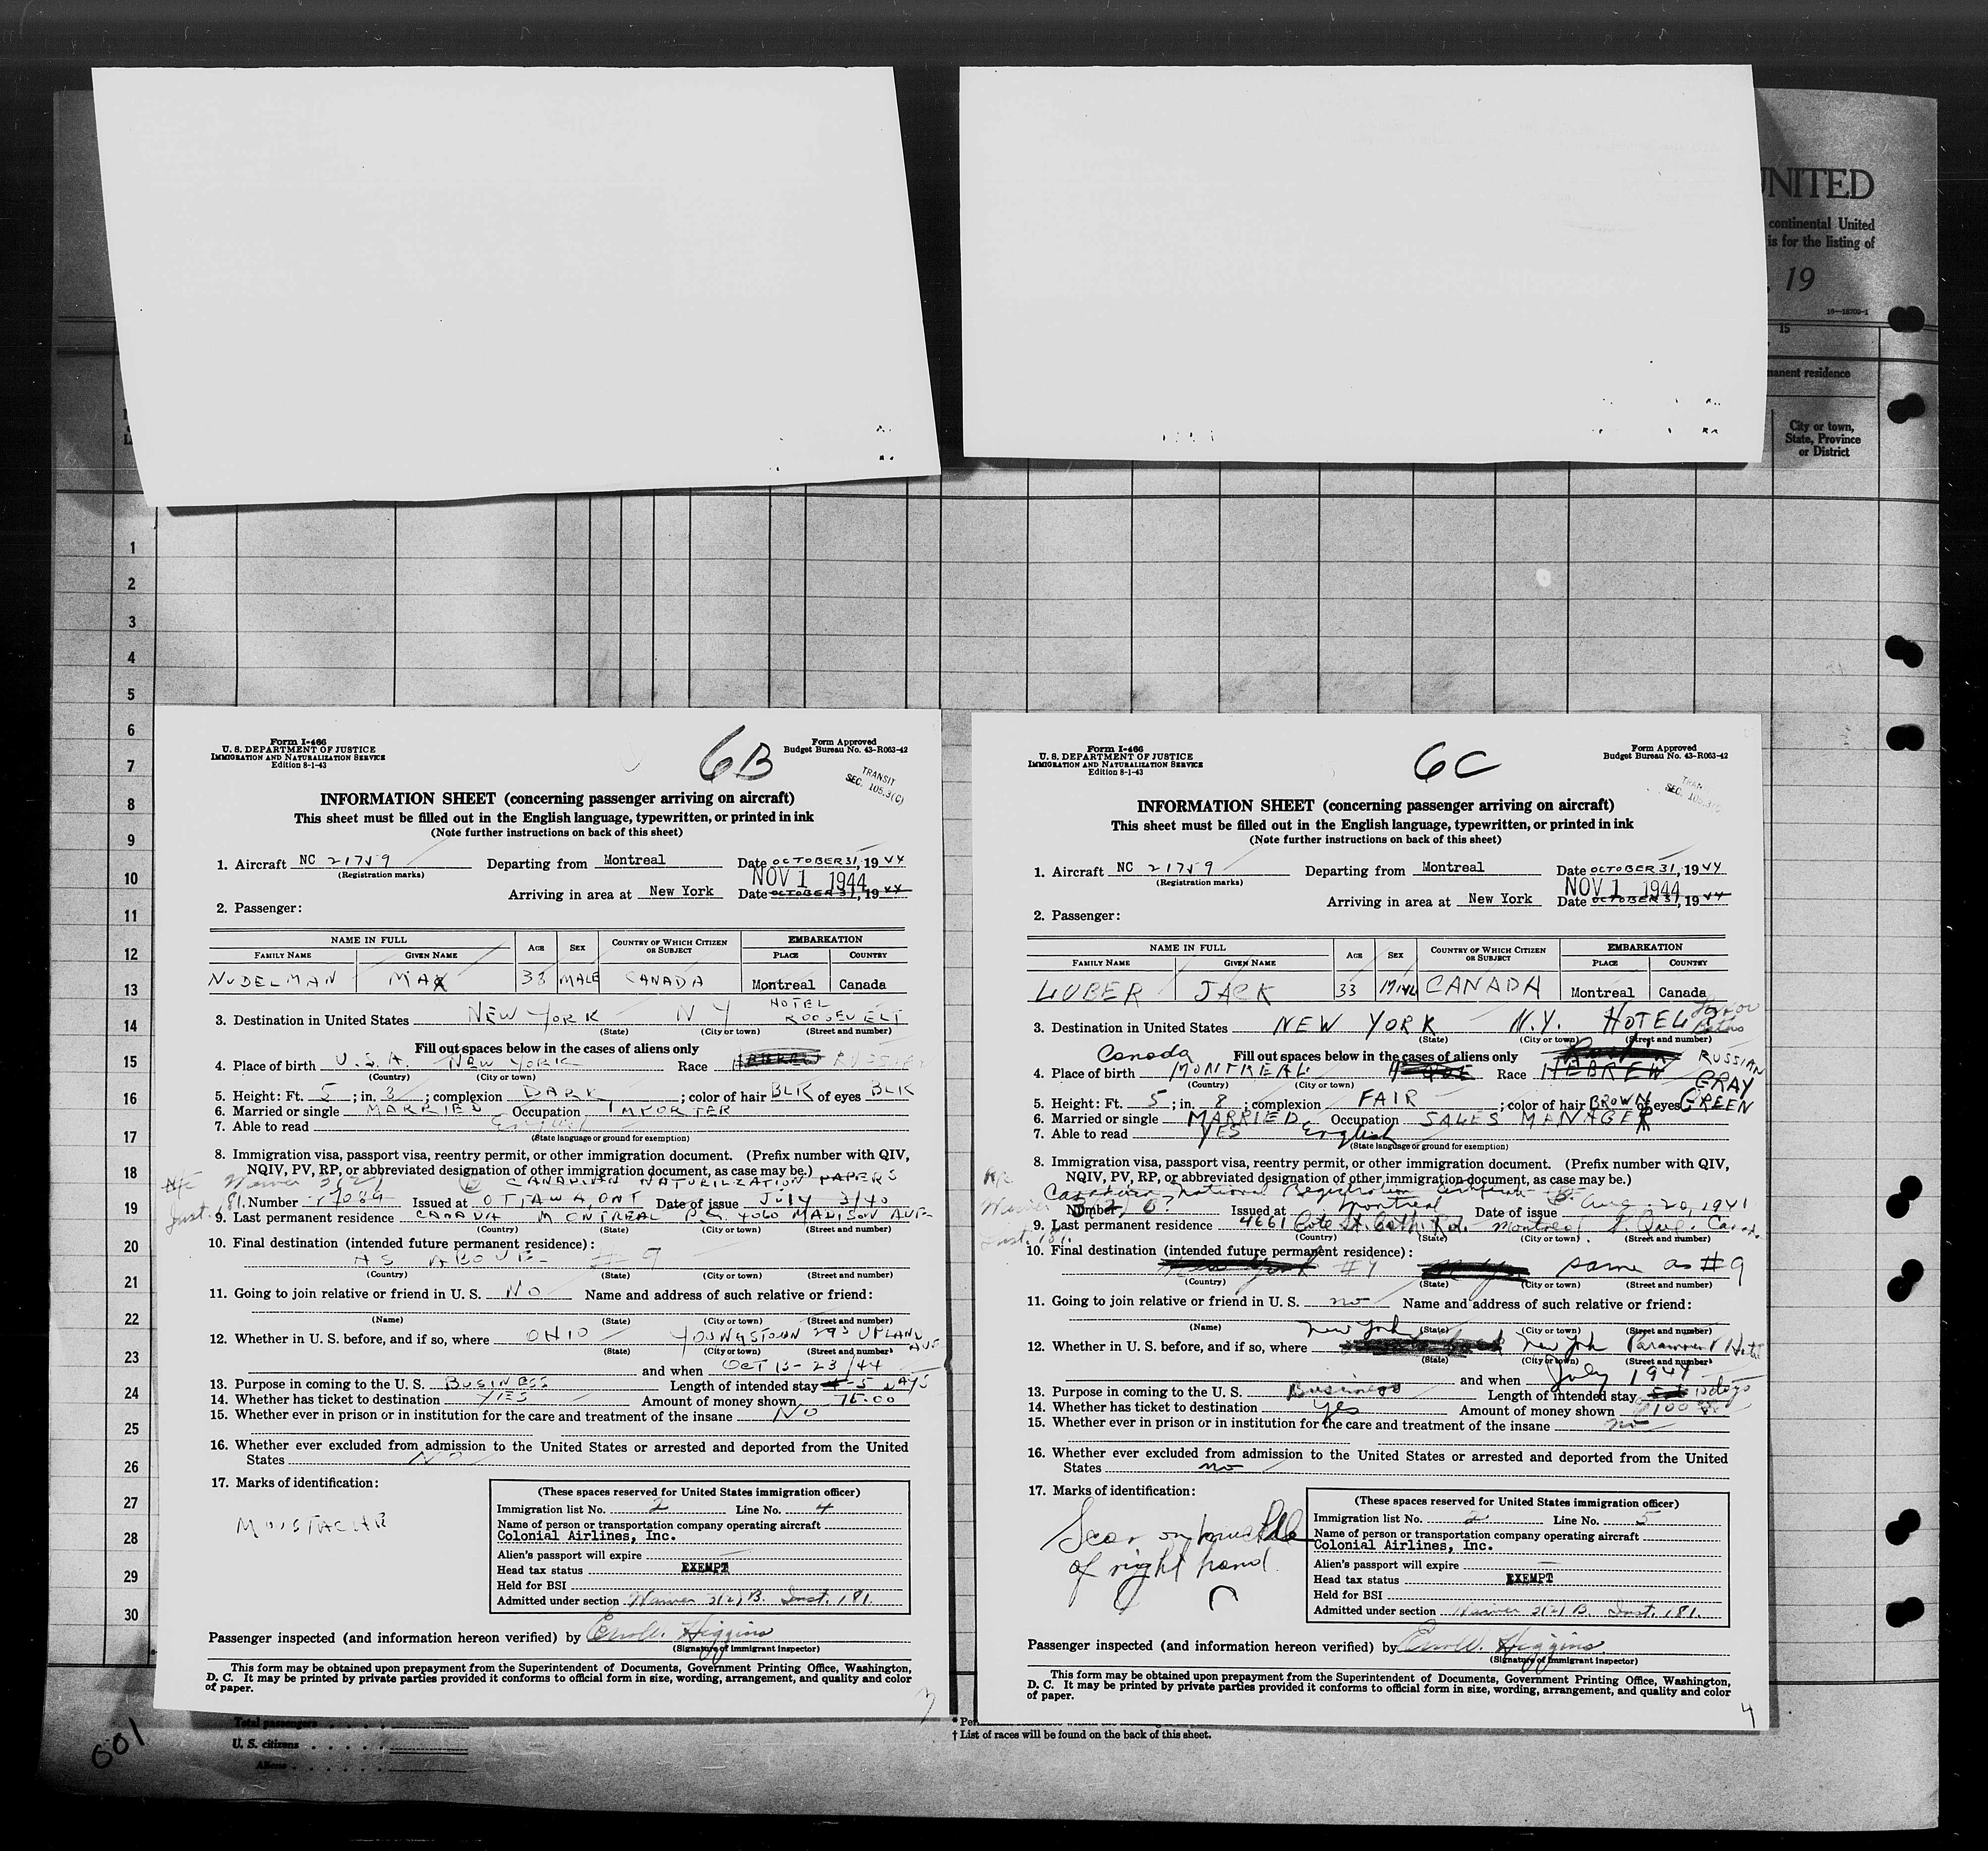 UNITED
continental United
is for the listing of
, 19
16—18709-1
15
manent residence
City or town,
State, Province
or District
1
2
3
4
5
6
7
8
9
10
11
12
13
14
15
16
17
18
19
20
21
22
23
24
25
26
27
28
29
30
Form I-466
U. S. DEPARTMENT OF JUSTICE
IMMIGRATION AND NATURALIZATION SERVICE
Edition 8-1-43
6B
Form Approved
Budget Bureau No. 43-R063-42
TRANSIT
SEC. 105.3(C)
INFORMATION SHEET (concerning passenger arriving on aircraft)
This sheet must be filled out in the English language, typewritten, or printed in ink
(Note further instructions on back of this sheet)
1. Aircraft NC 21759 Departing from Montreal Date OCTOBER 31, 1944
(Registration marks)
NOV 1 1944
Arriving in area at New York Date OCTOBER 31, 1944
2. Passenger:
NAME IN FULL AGE SEX COUNTRY OF WHICH CITIZEN OR SUBJECT EMBARKATION
FAMILY NAME GIVEN NAME PLACE COUNTRY
NUDELMAN MAX 33 MALE CANADA Montreal Canada
3. Destination in United States NEW YORK N Y HOTEL ROOSEVELT
(State) (City or town) (Street and number)
Fill out spaces below in the cases of aliens only
4. Place of birth U.S.A. NEW YORK Race RUSSIAN
(Country) (City or town)
5. Height: Ft. 5; in. 8; complexion DARK; color of hair BLK of eyes BLK
6. Married or single MARRIED Occupation IMPORTER
7. Able to read English
(State language or ground for exemption)
8. Immigration visa, passport visa, reentry permit, or other immigration document. (Prefix number with QIV,
NQIV, PV, RP, or abbreviated designation of other immigration document, as case may be.)
CANADIAN NATURILIZATION PAPERS
Number 17089 Issued at OTTAWA, ONT Date of issue JULY 3/40
9. Last permanent residence CANADA MONTREAL P.Q. 4060 MADISON AVE
(Country) (State) (City or town) (Street and number)
10. Final destination (intended future permanent residence):
AS ABOVE #9
(Country) (State) (City or town) (Street and number)
11. Going to join relative or friend in U. S. NO Name and address of such relative or friend:
(Name) (State) (City or town) (Street and number)
12. Whether in U. S. before, and if so, where OHIO YOUNGSTOWN 293 UPLAND AVE
(State) (City or town) (Street and number)
and when OCT 13-23/44
13. Purpose in coming to the U. S. BUSINESS Length of intended stay 4-5 DAYS
14. Whether has ticket to destination YES Amount of money shown 75.00
15. Whether ever in prison or in institution for the care and treatment of the insane NO
16. Whether ever excluded from admission to the United States or arrested and deported from the United
States NO
17. Marks of identification:
MOUSTACHE
(These spaces reserved for United States immigration officer)
Immigration list No. 2 Line No. 4
Name of person or transportation company operating aircraft
Colonial Airlines, Inc.
Alien's passport will expire
Head tax status EXEMPT
Held for BSI
Admitted under section Waiver 3(2) B. Inst. 181.
Passenger inspected (and information hereon verified) by Errol W. Higgins
(Signature of Immigrant Inspector)
This form may be obtained upon prepayment from the Superintendent of Documents, Government Printing Office, Washington,
D. C. It may be printed by private parties provided it conforms to official form in size, wording, arrangement, and quality and color
of paper.
3
Form I-466
U. S. DEPARTMENT OF JUSTICE
IMMIGRATION AND NATURALIZATION SERVICE
Edition 8-1-43
6C
Form Approved
Budget Bureau No. 43-R063-42
INFORMATION SHEET (concerning passenger arriving on aircraft)
This sheet must be filled out in the English language, typewritten, or printed in ink
(Note further instructions on back of this sheet)
1. Aircraft NC 21759 Departing from Montreal Date OCTOBER 31, 1944
(Registration marks)
NOV 1 1944
Arriving in area at New York Date OCTOBER 31, 1944
2. Passenger:
NAME IN FULL AGE SEX COUNTRY OF WHICH CITIZEN OR SUBJECT EMBARKATION
FAMILY NAME GIVEN NAME PLACE COUNTRY
LUBER JACK 33 MALE CANADA Montreal Canada
3. Destination in United States NEW YORK N.Y. HOTEL
(State) (City or town) (Street and number)
Canada Fill out spaces below in the cases of aliens only
4. Place of birth MONTREAL Race HEBREW RUSSIAN
(Country) (City or town)
GRAY
5. Height: Ft. 5; in. 8; complexion FAIR; color of hair BROWN of eyes GREEN
6. Married or single MARRIED Occupation SALES MANAGER
7. Able to read YES English
(State language or ground for exemption)
8. Immigration visa, passport visa, reentry permit, or other immigration document. (Prefix number with QIV,
NQIV, PV, RP, or abbreviated designation of other immigration document, as case may be.)
Canadian National Registration Certificate
Number Issued at Montreal Date of issue Aug 20, 1941
9. Last permanent residence 4661 Cote St. Cath. Rd. Montreal
(Country) (State) (City or town) (Street and number)
10. Final destination (intended future permanent residence):
same as #9
(Country) (State) (City or town) (Street and number)
11. Going to join relative or friend in U. S. no Name and address of such relative or friend:
(Name) (State) (City or town) (Street and number)
New York
12. Whether in U. S. before, and if so, where New York Paramount Hotel
(State) (City or town) (Street and number)
and when July 1944
13. Purpose in coming to the U. S. Business Length of intended stay 10 days
14. Whether has ticket to destination yes Amount of money shown 100
15. Whether ever in prison or in institution for the care and treatment of the insane no
16. Whether ever excluded from admission to the United States or arrested and deported from the United
States no
17. Marks of identification:
Scar on knuckle
of right hand
(These spaces reserved for United States immigration officer)
Immigration list No. 2 Line No. 5
Name of person or transportation company operating aircraft
Colonial Airlines, Inc.
Alien's passport will expire
Head tax status EXEMPT
Held for BSI
Admitted under section Waiver 3(2) B. Inst. 181.
Passenger inspected (and information hereon verified) by Errol W. Higgins
(Signature of Immigrant Inspector)
This form may be obtained upon prepayment from the Superintendent of Documents, Government Printing Office, Washington,
D. C. It may be printed by private parties provided it conforms to official form in size, wording, arrangement, and quality and color
of paper.
4
Total passengers
U. S. citizens
Aliens
† List of races will be found on the back of this sheet.
001